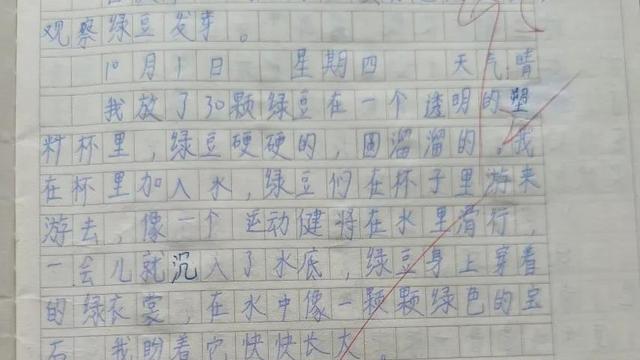 观察绿豆发芽。
10月1日 星期四 天气晴
我放了30颗绿豆在一个透明的塑
料杯里，绿豆硬硬的，圆溜溜的，我
在杯里加入水，绿豆们在杯子里游来
游去，像一个运动健将在水里滑行，
一会儿就沉入了水底，绿豆身上穿着
的绿衣裳，在水中像一颗颗绿色的宝
石。我盼着它快快长大。